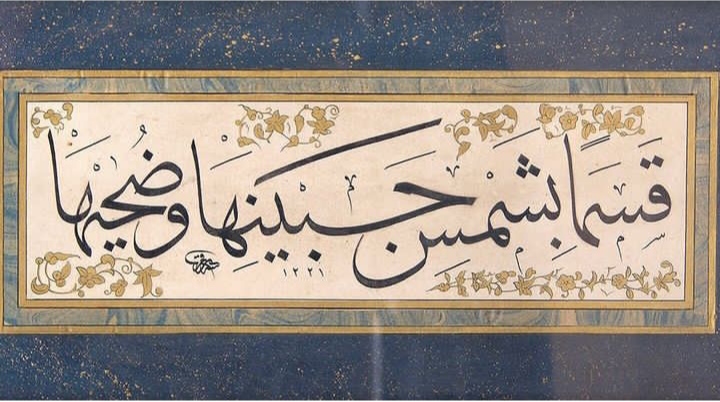 قَسَمًا بِشَمْسِ جَبِينِهَا وَضُحٰيهَا
١٢٢١